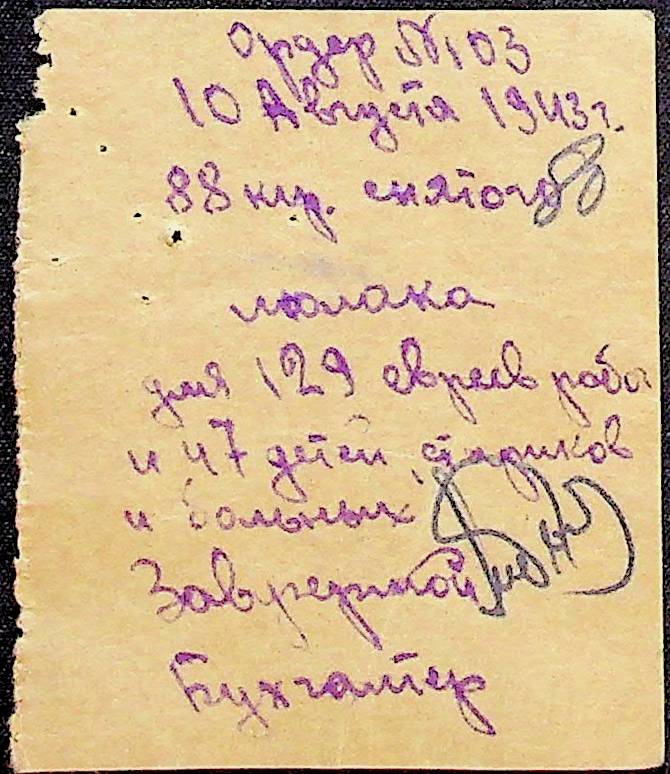 Ордер №103
10 Августа 1943 г.
88 кгр. снятого
молока
для 129 евреев рабо
и 47 детей, стариков
и больных
Зав
Бухгалтер